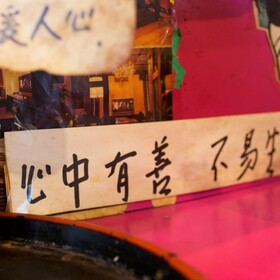 美人心.
心中有善 不易生